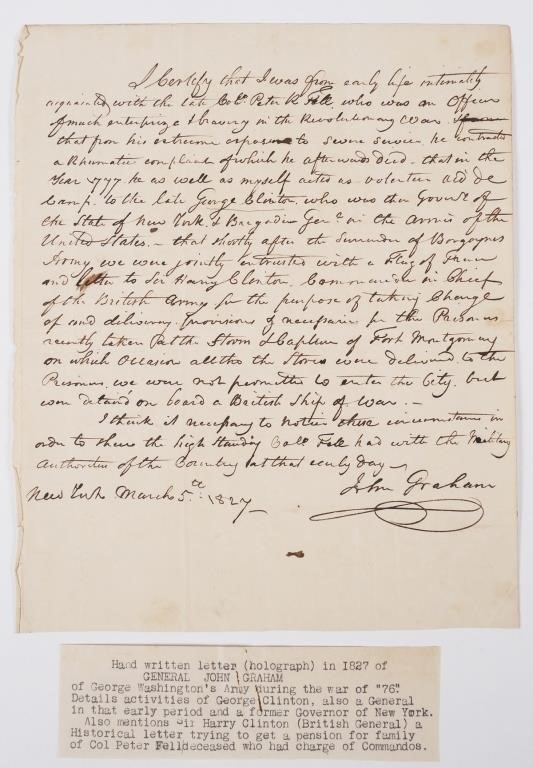 I Certify that I was from early life intimately
acquainted with the late Col. Peter R Fell, who was an Officer
of much enterprize & bravery in the Revolutionary War
that from his extreem exposure to severe service he contracted
a Rhumatic complaint of which he afterward died - that in the
Year 1777 he as well as myself acted as volunteer aid de
Camp to the late George Clinton, who was then Governor of
the State of New York & Brigadier Genl in the Armies of the
United States. - that shortly after the Surrender of Burgoynes
Army we were jointly entrusted with a Flag of Truce
and letter to Sir Harry Clinton, Commander in Chief
of the British Army for the purpose of taking Charge
of and delivering provisions & necessaries for the Prisoners
recently taken at the Storm & Capture of Fort Montgomery
on which Occasion altho the Stores were delivered to the
Prisoners, we were not permitted to enter the City, but
were detaind on board a British Ship of War. -
I think it necessary to notice these circumstances in
order to shew the high Standing Coll Fell had with the Military
Authorities of the Country at that early day
New York March 5th 1827
John Graham
Hand written letter (holograph) in 1827 of
GENERAL JOHN GRAHAM
of George Washington's Army during the war of "76"
Details activities of George Clinton, also a General
in that early period and a former Governor of New York.
Also mentions Sir Harry Clinton (British General) a
Historical letter trying to get a pension for family
of Col Peter Felldeceased who had charge of Commandos.